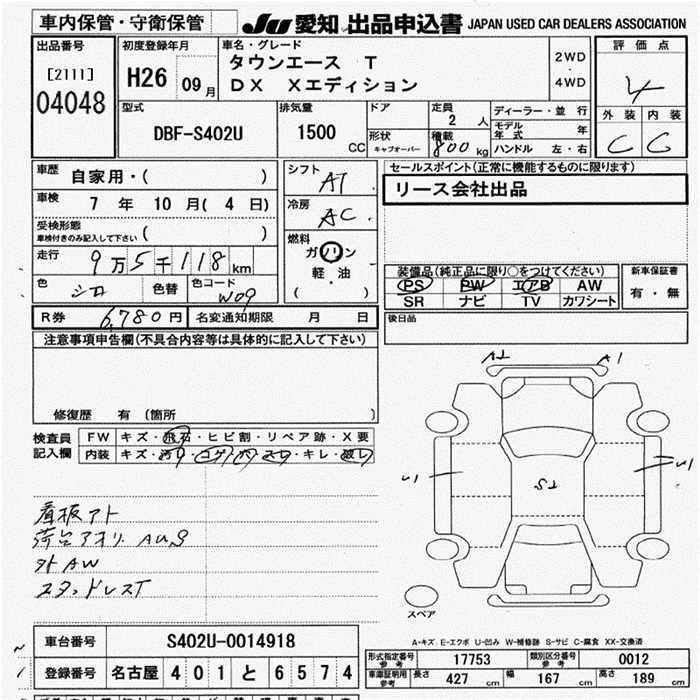 車内保管・守衛保管
JU 愛知 出品申込書 JAPAN USED CAR DEALERS ASSOCIATION
出品番号
[2111]
04048
初度登録年月
H26 09月
車名・グレード
タウンエース T
DX Xエディション
2WD
・
4WD
評価点
4
外装 内装
C C
型式
DBF-S402U
排気量
1500 CC
ドア
形状
キャブオーバー
定員
2 人
積載
800 kg
ディーラー・並行
モデル年式 年
ハンドル 左・右
車歴
自家用・( )
車検 7 年 10 月( 4 日)
受検形態
車検付きのみ記入して下さい ( )
走行 9万5千118 km
色 シロ 色替 色コード W09
シフト AT
冷房 AC
燃料
ガソリン
軽・油
( )
セールスポイント(正常に機能するものに限ります)
リース会社出品
装備品(純正品に限り○をつけてください)
PS PW エアB AW
SR ナビ TV カワシート
新車保証書
有・無
R券 6,780円 名変通知期限 月 日
後日品
注意事項申告欄(不具合内容等は具体的に記入して下さい)
修復歴 有 (箇所 )
検査員記入欄
FW キズ・飛石・ヒビ割・リペア跡・X要
内装 キズ・汚れ・コゲ・穴・スレ・キレ・破レ
看板アト
荷台アオリ AUS
外AW
スタッドレスT
A1 A1
U1 U1
ST
スペア
A-キズ E-エクボ U-凹み W-補修跡 S-サビ C-腐食 XX-交換済
車台番号 S402U-0014918
登録番号 名古屋 401 と 6574
形式指定番号 参考 17753 類別区分番号 参考 0012
車庫証明用 参考 長さ 427 cm 幅 167 cm 高さ 189 cm